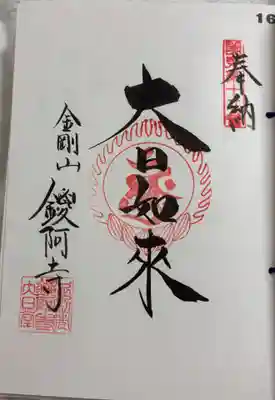 16
奉納
大日如來
金剛山
鑁阿寺